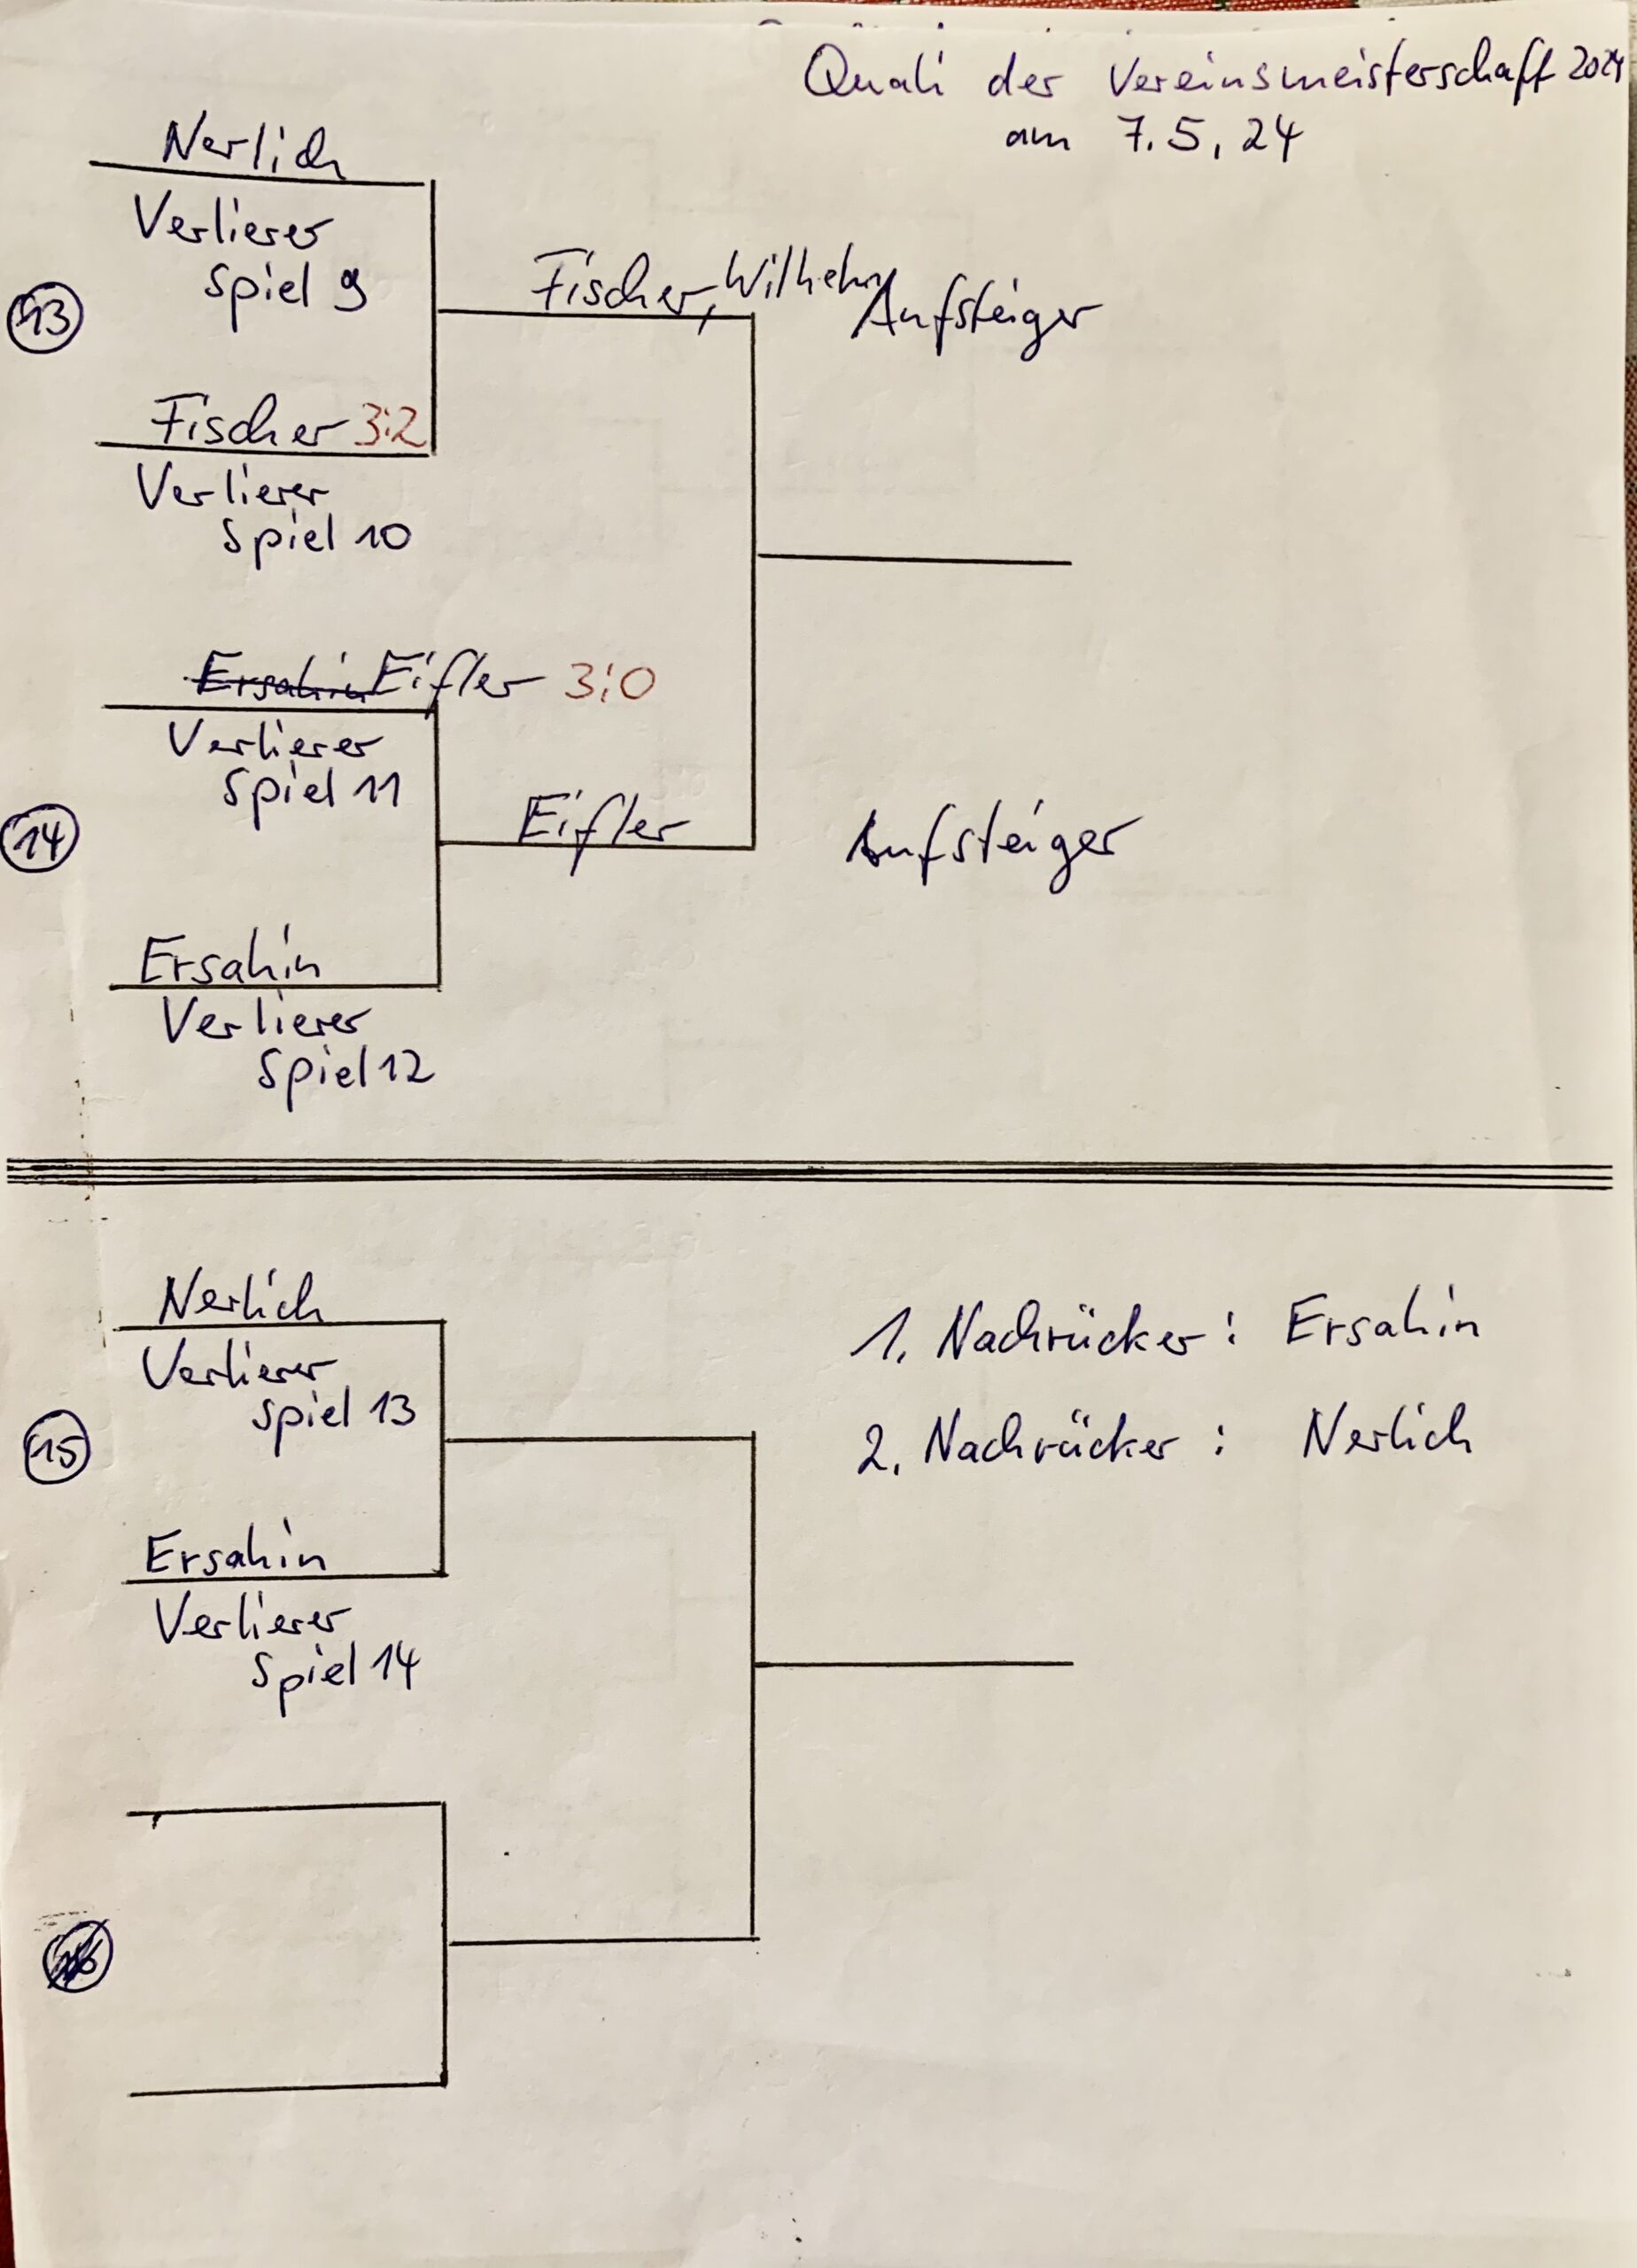 Quali der Vereinsmeisterschaft 2024
am 7.5.24
Nerlich
Verlierer
Spiel 9
13
Fischer, Wilhelm
Aufsteiger
Fischer 3:2
Verlierer
Spiel 10
Ersahin Eifler 3:0
Verlierer
Spiel 11
14
Eifler
Aufsteiger
Ersahin
Verlierer
Spiel 12
Nerlich
Verlierer
Spiel 13
15
1. Nachrücker: Ersahin
2. Nachrücker: Nerlich
Ersahin
Verlierer
Spiel 14